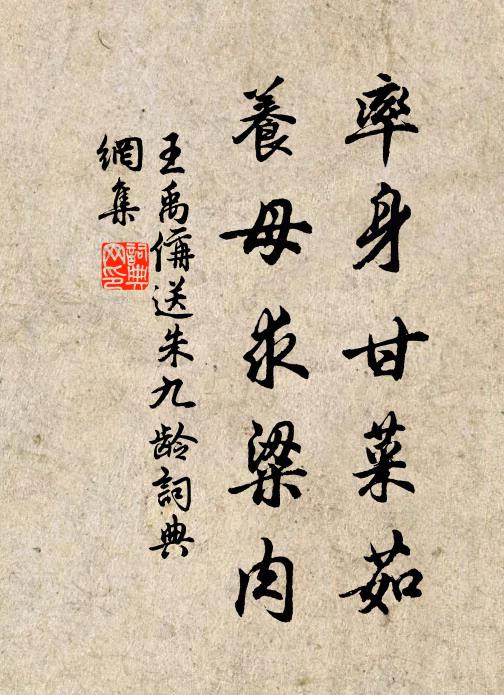 率身甘菜茹
養母求粱肉
王禹偁送朱九齡詞典
網集
詞典
网印